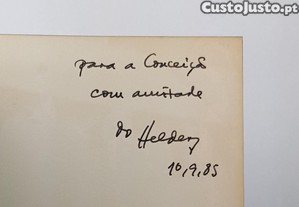 CustoJusto.pt
para a Conceição
com amizade
do Helder
10,9,85